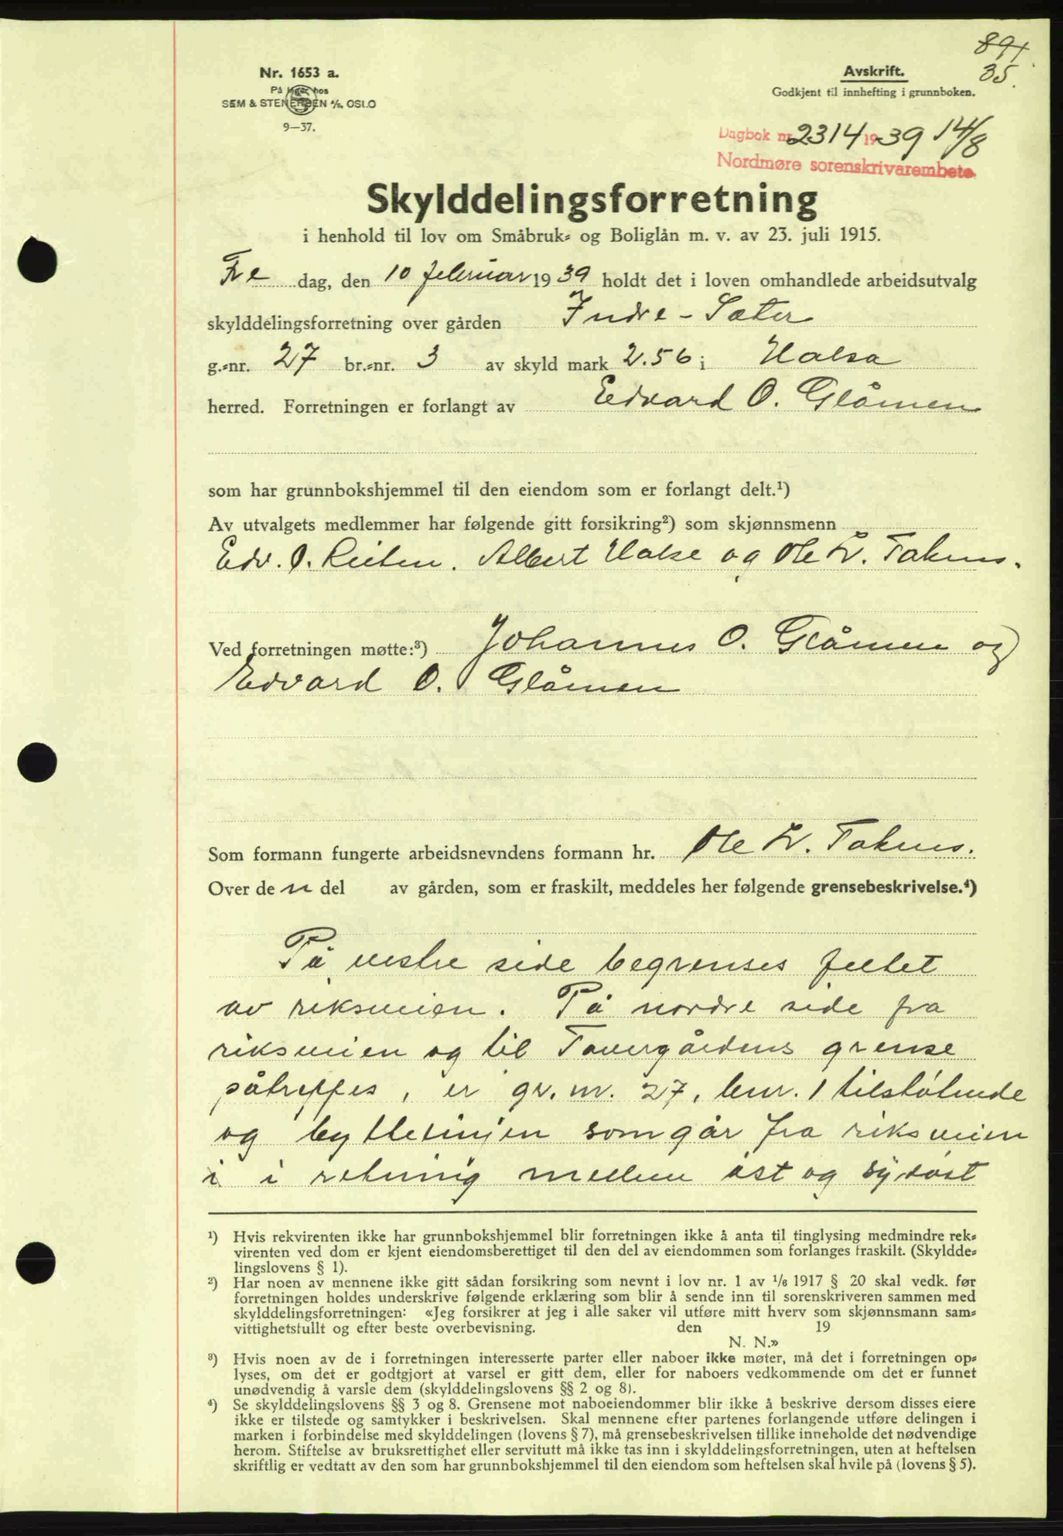 891.
35.
Nr. 1653 a.
På lager hos
SEM & STENERSEN A/S, OSLO
9—37.
Avskrift.
Godkjent til innhefting i grunnboken.
Dagbok nr. 2314 19 39 14/8
Nordmøre sorenskrivarembete.
Skylddelingsforretning
i henhold til lov om Småbruk- og Boliglån m. v. av 23. juli 1915.
Fre dag, den 10 februar 1939 holdt det i loven omhandlede arbeidsutvalg
skylddelingsforretning over gården Indre - Sæter
g.-nr. 27 br.-nr. 3 av skyld mark 2.56 i Halsa
herred. Forretningen er forlangt av Edvard O. Glåmen
som har grunnbokshjemmel til den eiendom som er forlangt delt.¹)
Av utvalgets medlemmer har følgende gitt forsikring²) som skjønnsmenn
Edv. O. Reiten. Albert Halse og Ole L. Taknes.
Ved forretningen møtte:³) Johannes O. Glåmen og
Edvard O. Glåmen
Som formann fungerte arbeidsnevndens formann hr. Ole L. Taknes.
Over de n del av gården, som er fraskilt, meddeles her følgende grensebeskrivelse.⁴)
På vestre side begrenses feltet
av riksveien. På nordre side fra
riksveien og til Tovergårdens grense
påtreffes, er gr. nr. 27, bnr. 1 tilstøtende
og byttelinjen som går fra riksveien
i i retning mellem øst og sydøst
¹) Hvis rekvirenten ikke har grunnbokshjemmel blir forretningen ikke å anta til tinglysing medmindre rek-
virenten ved dom er kjent eiendomsberettiget til den del av eiendommen som forlanges fraskilt. (Skyldde-
lingslovens § 1).
²) Har noen av mennene ikke gitt sådan forsikring som nevnt i lov nr. 1 av 1/6 1917 § 20 skal vedk. før
forretningen holdes underskrive følgende erklæring som blir å sende inn til sorenskriveren sammen med
skylddelingsforretningen: «Jeg forsikrer at jeg i alle saker vil utføre mitt hverv som skjønnsmann sam-
vittighetsfullt og efter beste overbevisning. den 19
N. N.»
³) Hvis noen av de i forretningen interesserte parter eller naboer ikke møter, må det i forretningen op-
lyses, om det er godtgjort at varsel er gitt dem, eller for naboers vedkommende om det er funnet
unødvendig å varsle dem (skylddelingslovens §§ 2 og 8).
⁴) Se skylddelingslovens §§ 3 og 8. Grensene mot naboeiendommer blir ikke å beskrive dersom disses eiere
ikke er tilstede og samtykker i beskrivelsen. Skal mennene efter partenes forlangende utføre delingen i
marken i forbindelse med skylddelingen (lovens § 7), må grensebeskrivelsen tillike inneholde det nødvendige
herom. Stiftelse av bruksrettighet eller servitutt må ikke tas inn i skylddelingsforretningen, uten at heftelsen
skriftlig er vedtatt av den som har grunnbokshjemmel til den eiendom som heftelsen skal hvile på (lovens § 5).